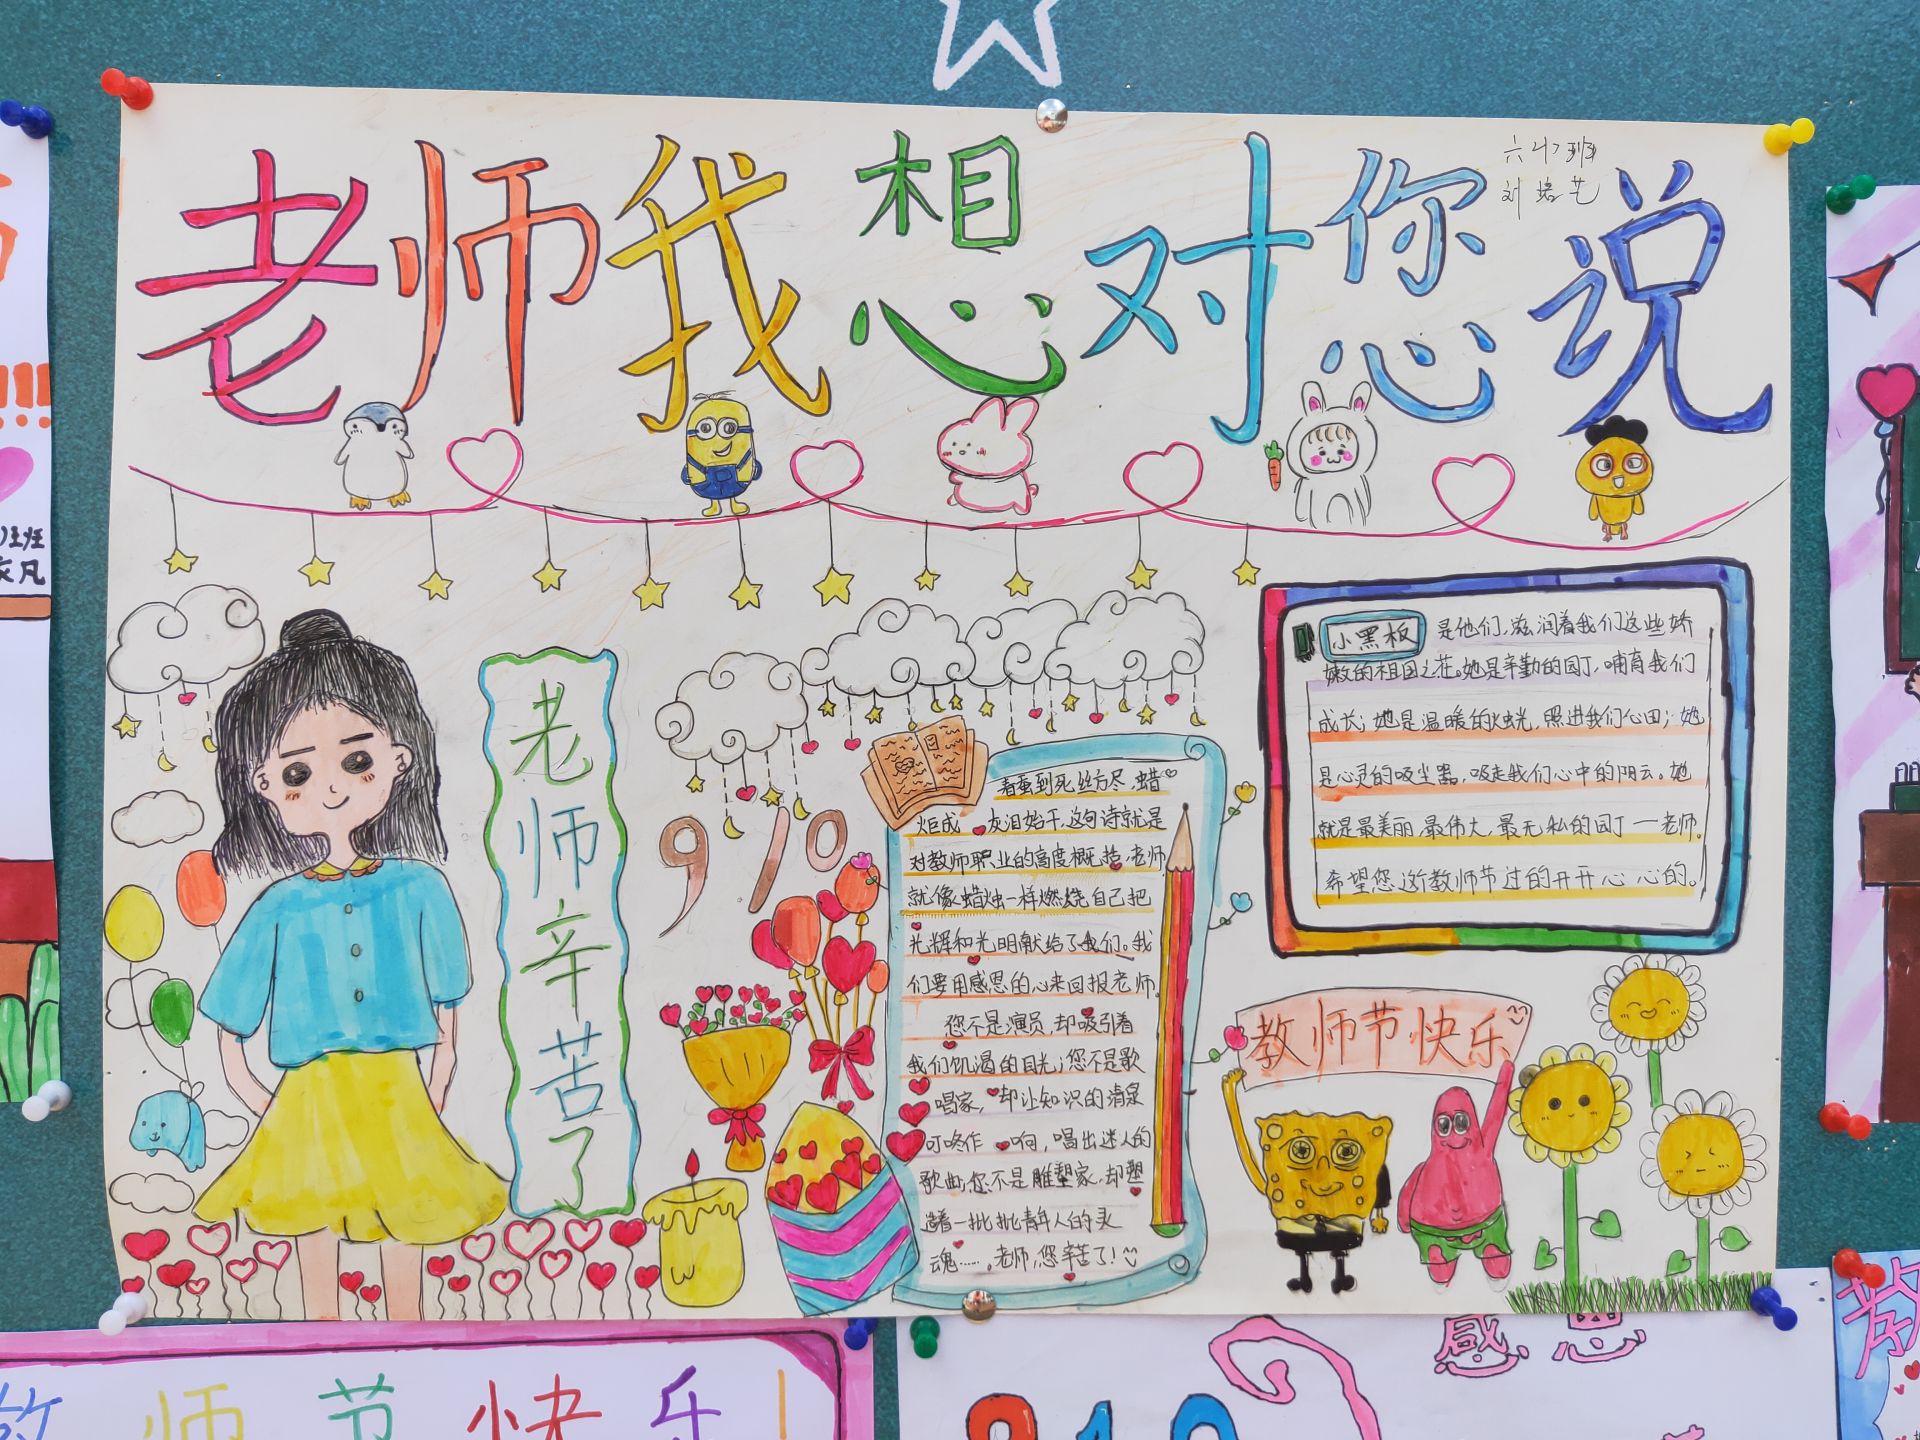 老师我想对您说
六
班
刘培艺
老师辛苦了
910
春蚕到死丝方尽,蜡
炬成灰泪始干,这句诗就是
对教师职业的高度概括,老师
就像蜡烛一样燃烧自己把
光辉和光明献给了我们。我
们要用感恩的心来回报老师。
您不是演员,却吸引着
我们饥渴的目光;您不是歌
唱家,却让知识的清泉
叮咚作响,唱出迷人的
歌曲,您不是雕塑家,却塑
造着一批批青年人的灵
魂……。老师,您辛苦了!
小黑板
是他们,滋润着我们这些娇
嫩的祖国之花。她是辛勤的园丁,哺育我们
成长;她是温暖的烛光,照进我们心田;她
是心灵的吸尘器,吸走我们心中的阴云。她
就是最美丽,最伟大,最无私的园丁一老师。
希望您这个教师节过的开开心心的。
教师节快乐
师节快乐
感恩
910
教